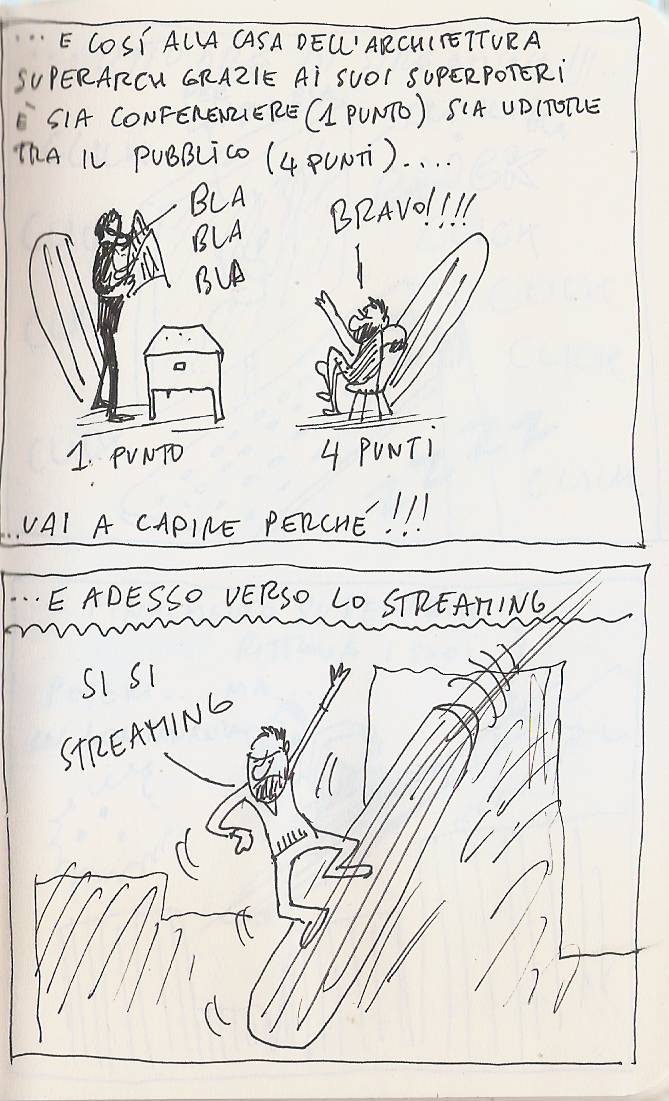 ... E COSÍ ALLA CASA DELL'ARCHITETTURA
SUPERARCH GRAZIE AI SUOI SUPERPOTERI
È SIA CONFERENZIERE (1 PUNTO) SIA UDITORE
TRA IL PUBBLICO (4 PUNTI)....
BLA
BLA
BLA
BRAVO!!!!
1 PUNTO
4 PUNTI
...VAI A CAPIRE PERCHÉ!!!
...E ADESSO VERSO LO STREAMING
SI SI
STREAMING